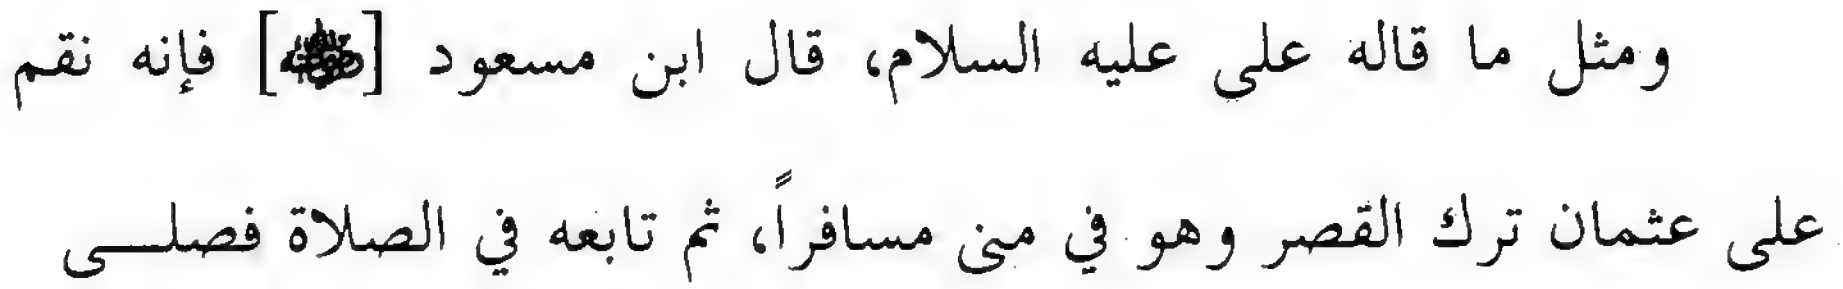 ومثل ما قاله على عليه السلام، قال ابن مسعود [رضي الله عنه] فإنه نقم
على عثمان ترك القصر وهو في منى مسافراً، ثم تابعه في الصلاة فصلــى